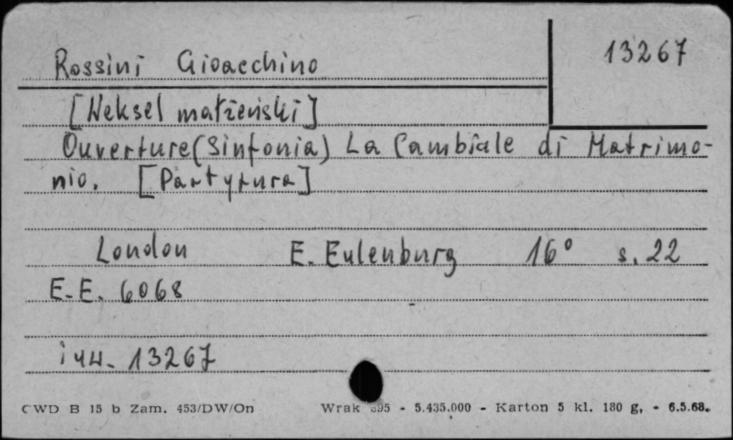 Rossini Gioacchino
13267
[Weksel małżeński]
Ouverture (Sinfonia) La Cambiale di Matrimo-
nio. [Partytura]
London E. Eulenburg 16° s. 22
E.E. 6068
inw. 13267
CWD B 15 b Zam. 453/DW/On Wrak 595 - 5.435.000 - Karton 5 kl. 180 g, - 6.5.68.